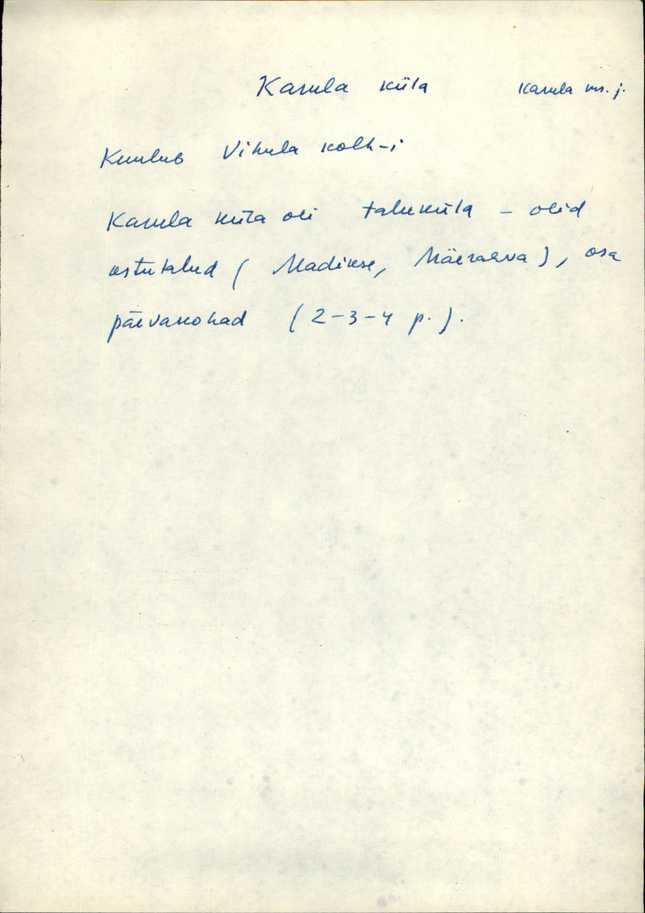 Karula küla Karula vn. j.
Kuulub Vihula kolh-i
Karula küla oli taluküla – olid
ostutalud ( Madikse, Mäeraeva ), osa
päevakohad ( 2-3-4 p. ).